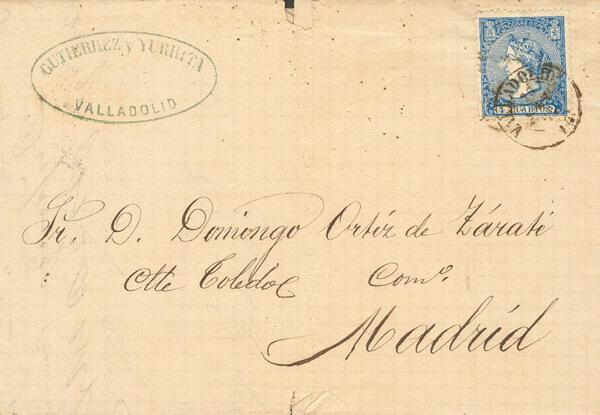 GUTIERREZ y YURRITA
VALLADOLID
CORREOS
VALLADOLID
Sr. D. Domingo Ortíz de Zárate
Clle Toledo Comº.
Madríd